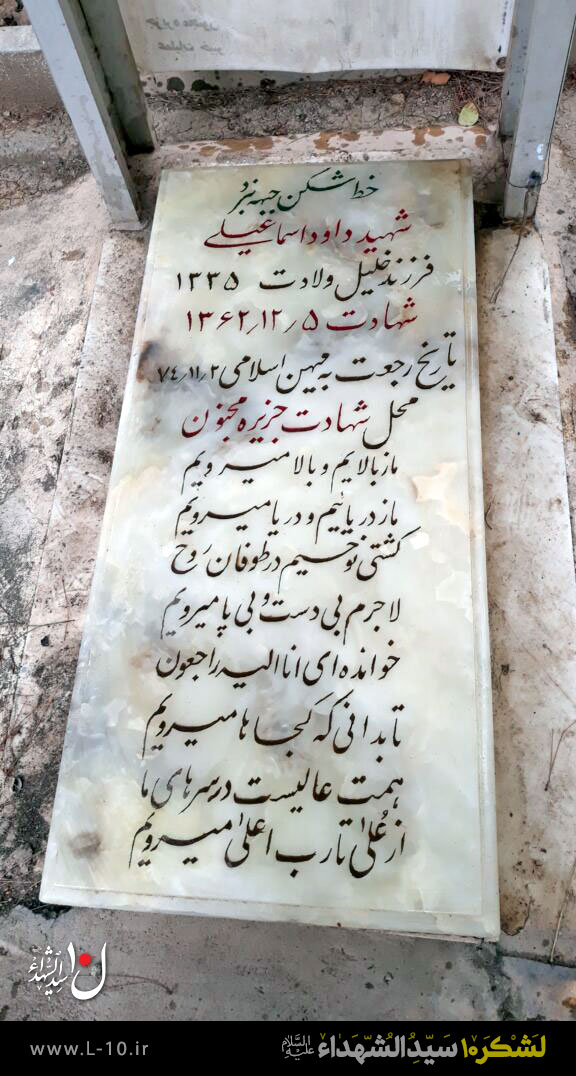 خط شکن جبهه نبرد
شهید داود اسماعیلی
فرزند خلیل ولادت ۱۳۳۵
شهادت ۱۳۶۲٫۱۲٫۵
تاریخ رجعت به میهن اسلامی ۷۴٫۱۱٫۲
محل شهادت جزیره مجنون
ما ز بالایم و بالا میرویم
ما ز دریائیم و دریا میرویم
کشتی نوحیم در طوفان روح
لاجرم بی دست و بی پا میرویم
خوانده ای انا الیه راجعون
تا بدانی که کجاها میرویم
همت عالیست در سرهای ما
از عُلیٰ تا رب اعلیٰ میرویم
ل۱۰ سیدالشهداء
www.L-10.ir
لَشْکَر۱۰ سَیِّدُالشُّهَداءِ عَلَیْهِ السَّلام